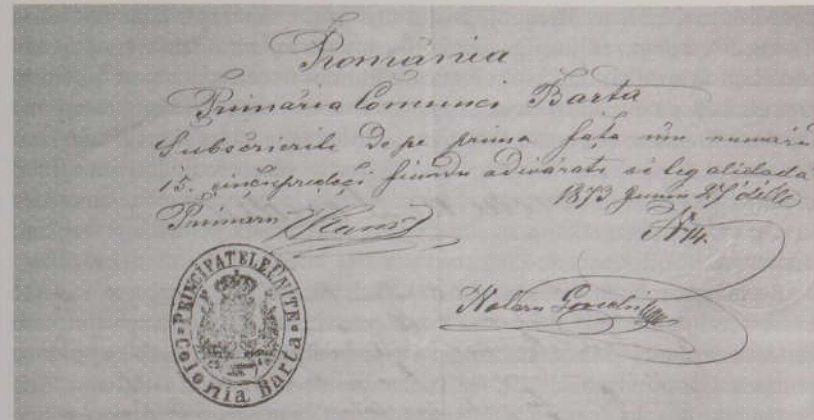 România
Primăria Comunei Barta
Subscrierile de pe prima fața in numaru
15. cincispredeci fiindu adivărate si legalidada
1873 Juniu 27 dille
Primaru
No 14.
PRINCIPATELE UNITE
Colonia Barta
Notaru